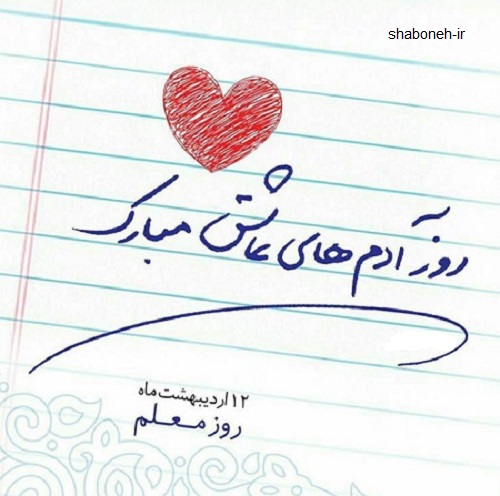 shaboneh-ir
روز آدم های عاشق مبارک
۱۲ اردیبهشت ماه
روز معلم